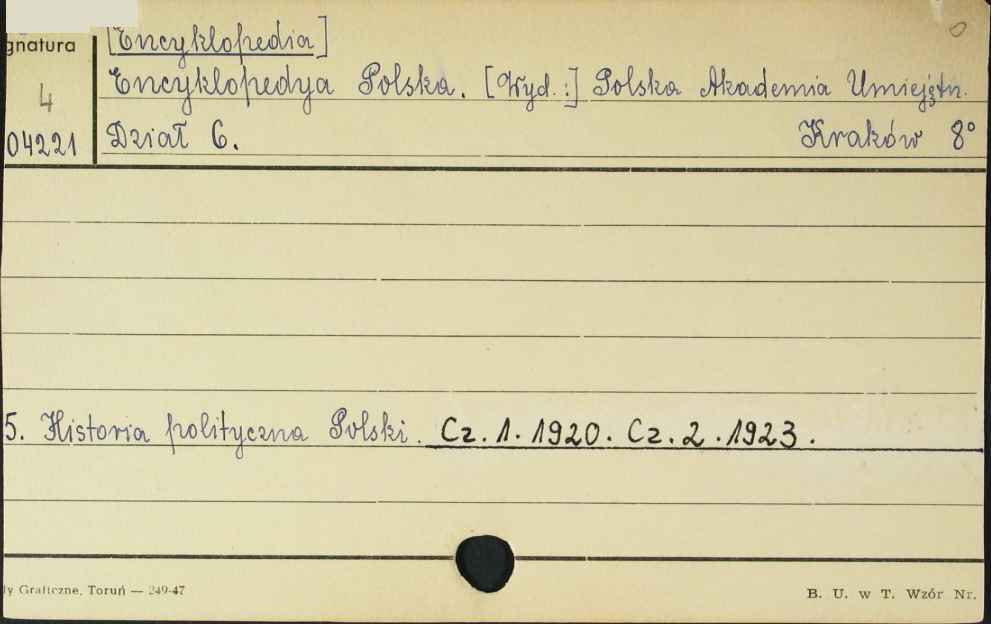 gnatura
[Encyklopedia]
4
Encyklopedya Polska. [Wyd.:] Polska Akademia Umiejętn.
04221
Dział 6. Kraków 8°
5. Historia polityczna Polski. Cz. 1. 1920. Cz. 2. 1923.
ly Graficzne, Toruń — 249-47
B. U. w T. Wzór Nr.